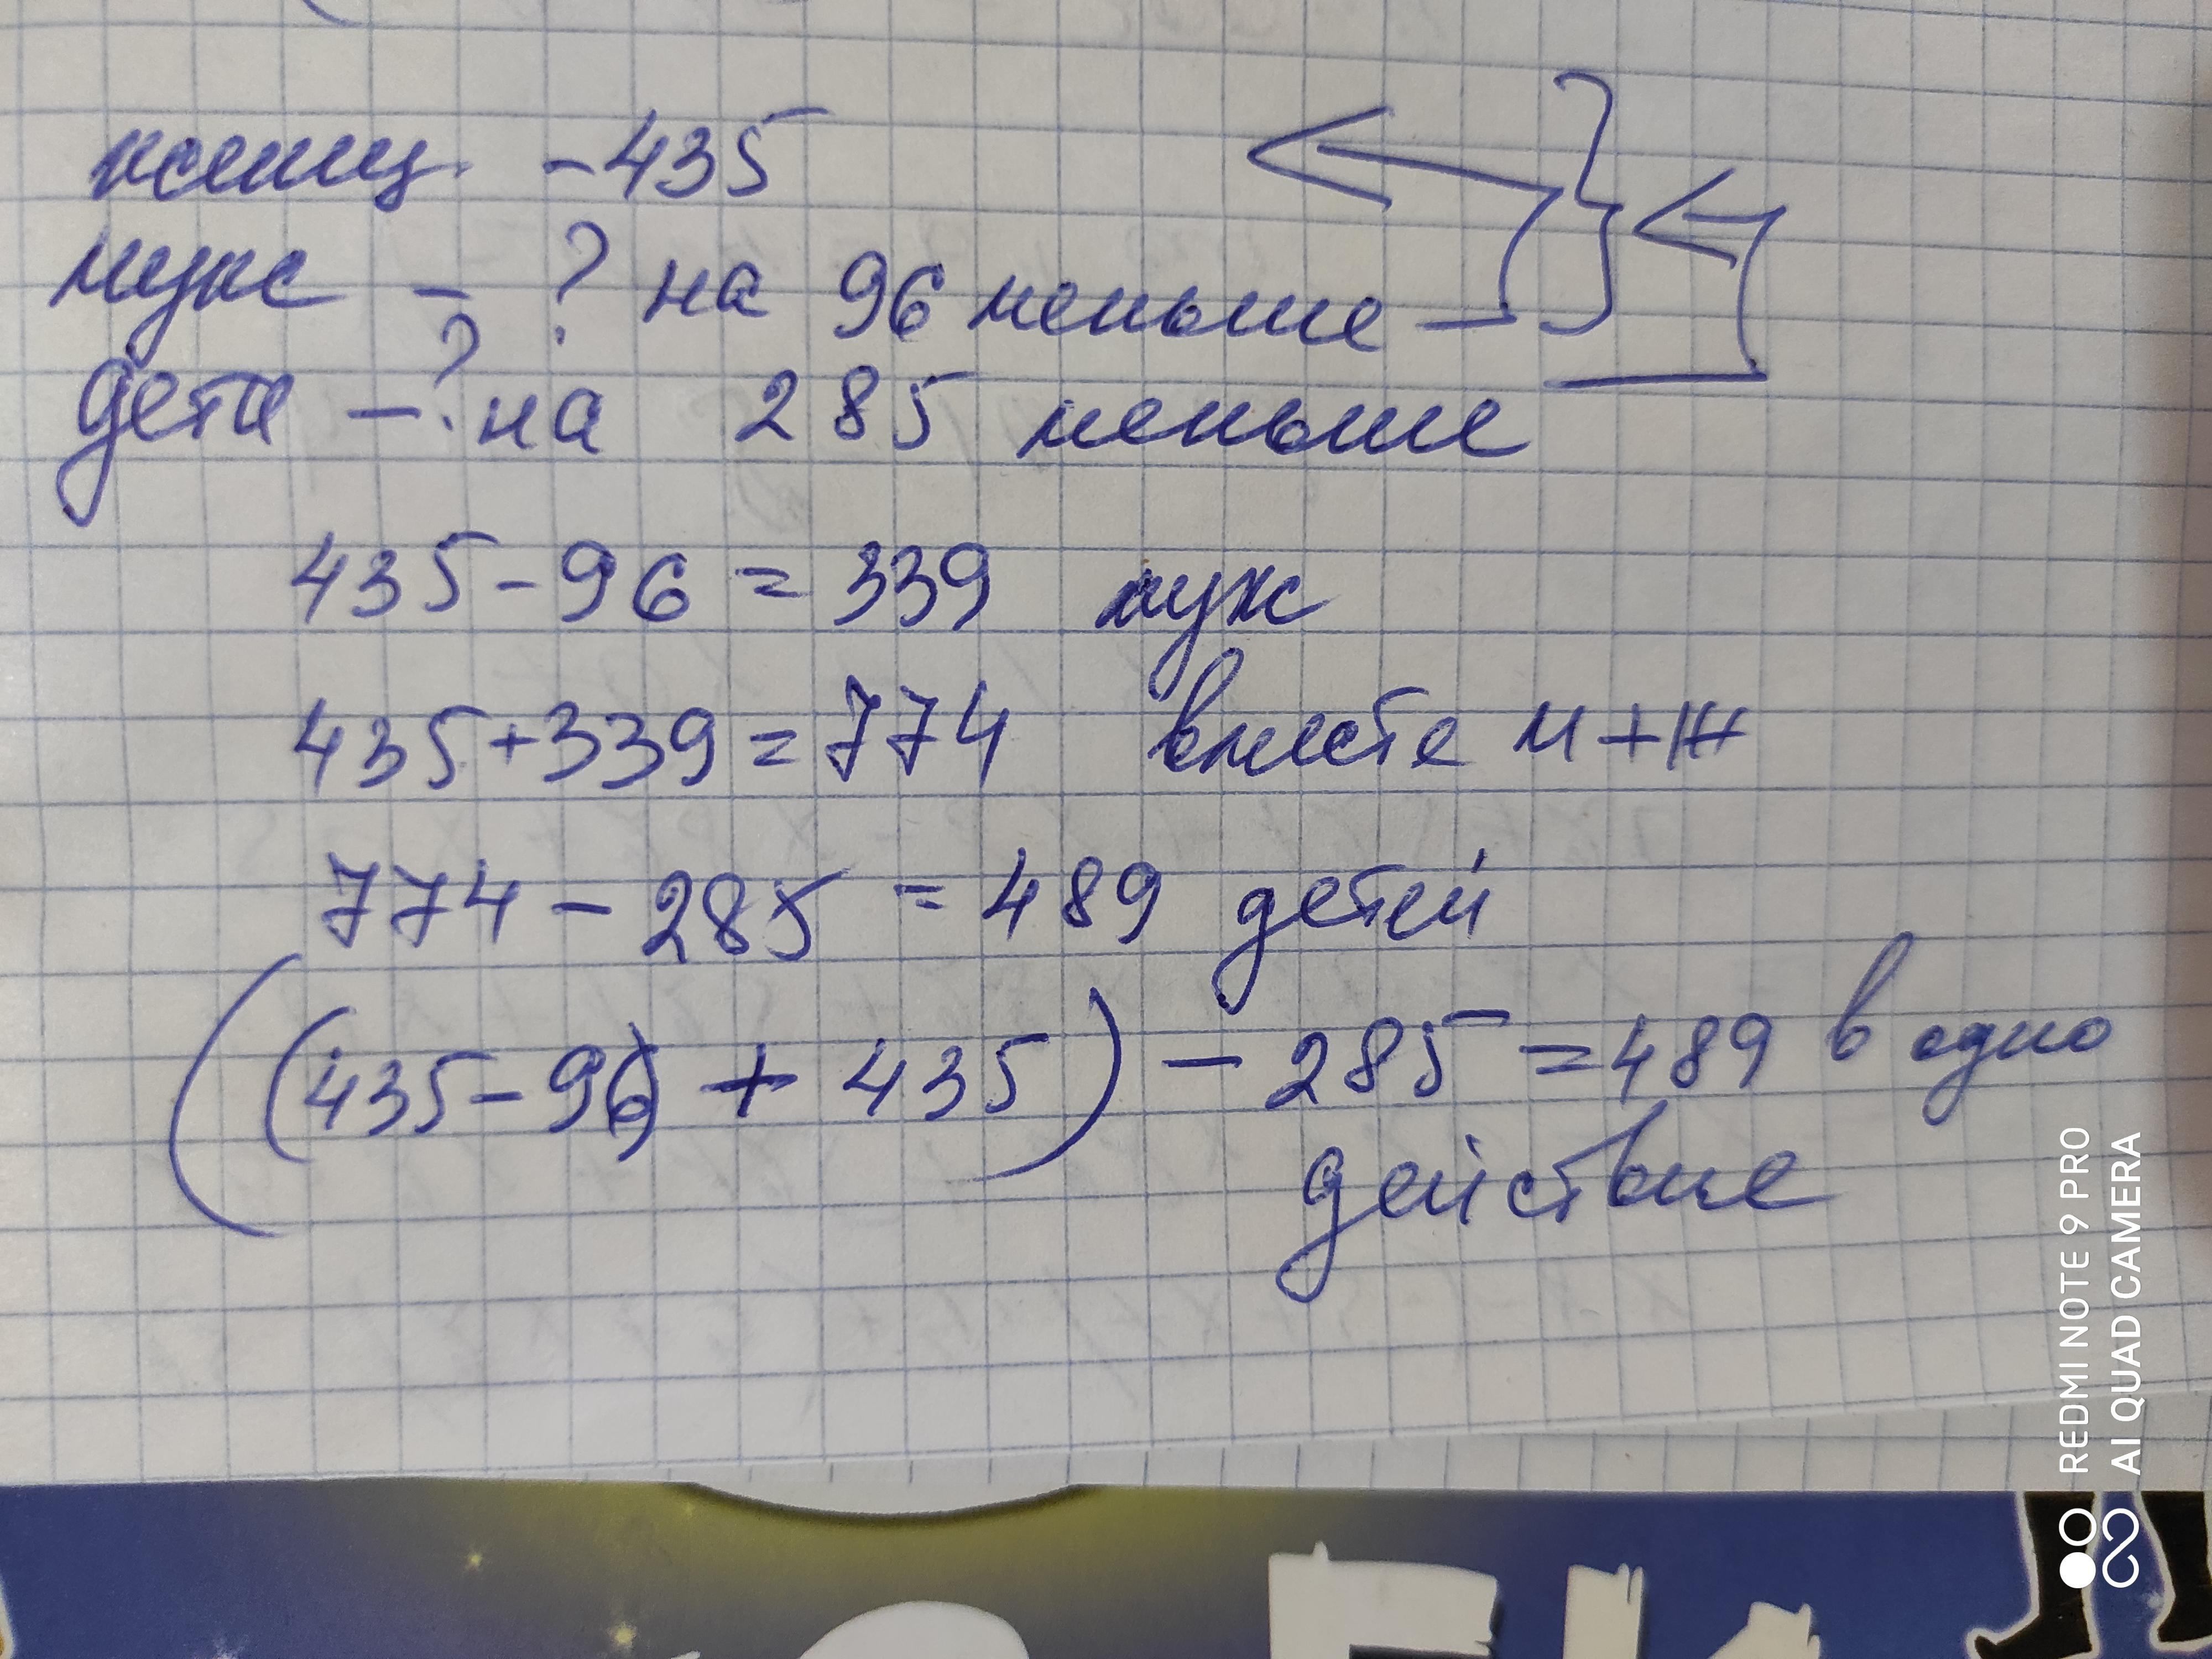 женщ. - 435
муж - ? на 96 меньше
дети - ? на 285 меньше
435 - 96 = 339 муж
435 + 339 = 774 вместе м + ж
774 - 285 = 489 детей
((435 - 96) + 435) - 285 = 489 в одно
действие
REDMI NOTE 9 PRO
AI QUAD CAMERA